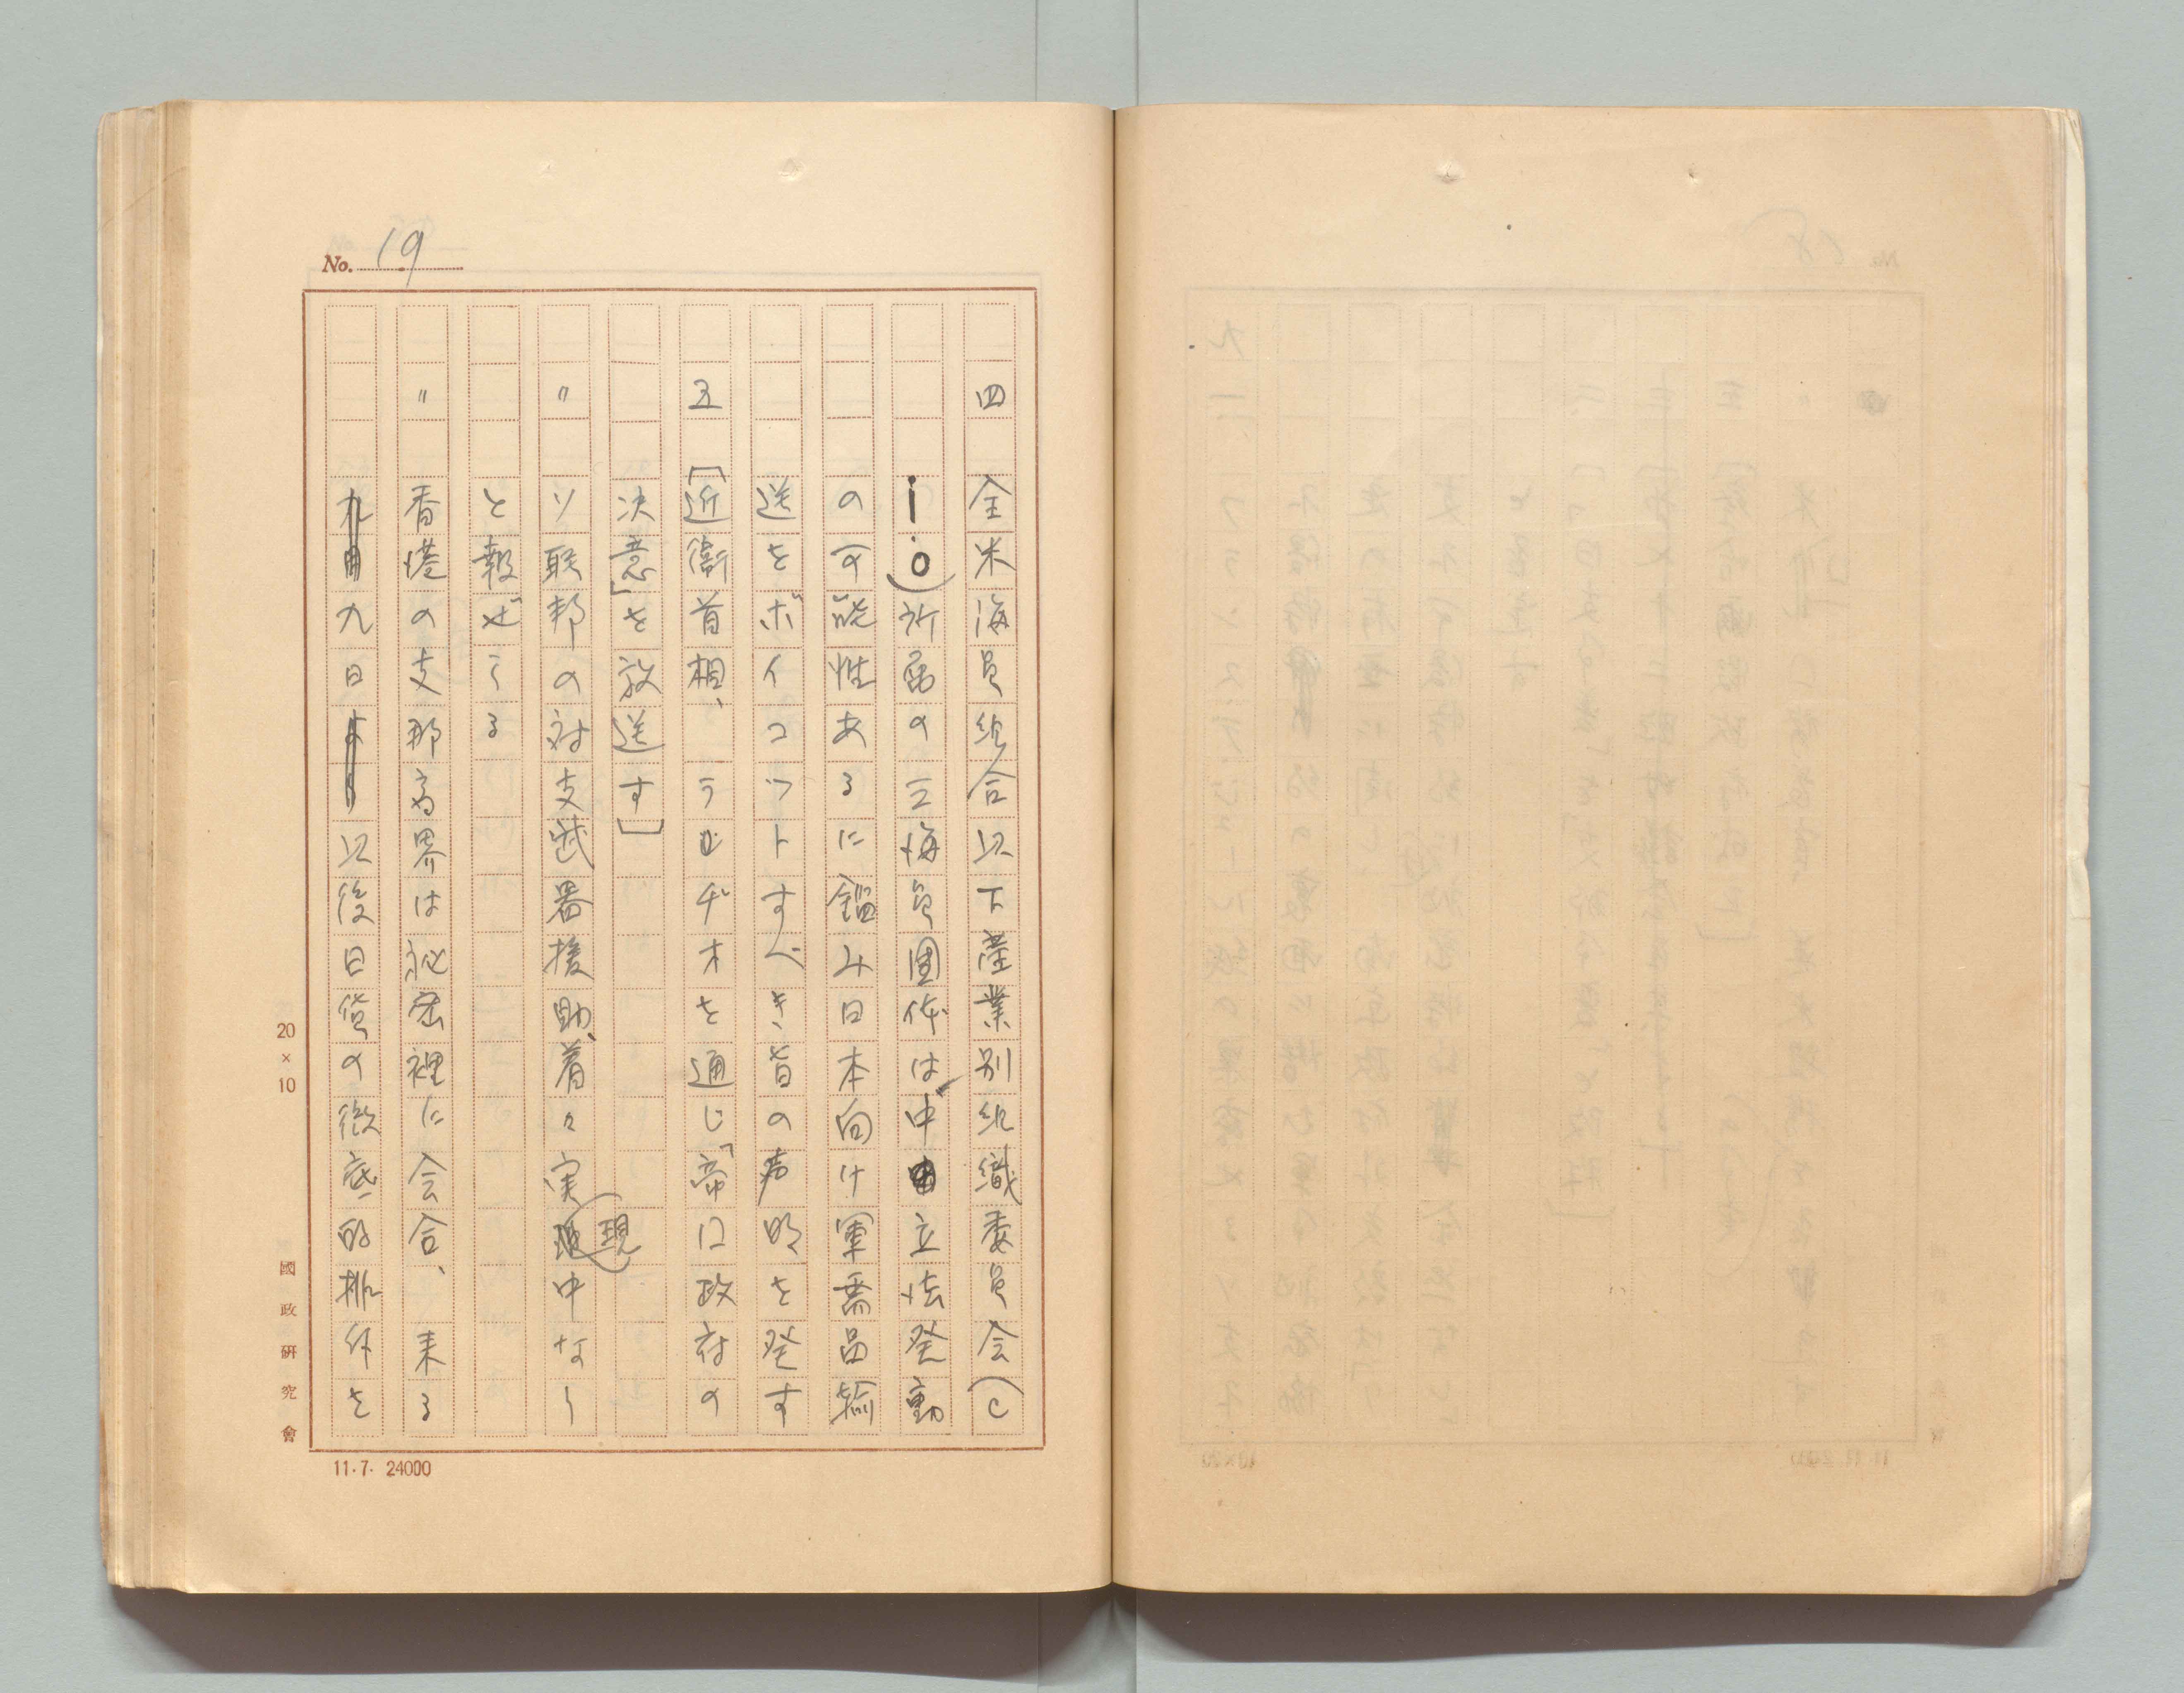 No. 19
四 全米海員組合以下産業別組織委員会(C
I O)所属の三海員團体は中立法発動
の可能性あるに鑑み日本向け軍需品輸
送をボイコツトすべき旨の声明を発す
五 [近衞首相、ラヂオを通じ「帝国政府の
決意」を放送す]
〃 ソ聯邦の対支武器援助、着々実現中なり
と報ぜらる
〃 香港の支那商界は祕密裡に会合、来る
九日以後日貨の徹底的排斥を
20×10
國政研究會
11.7. 24000